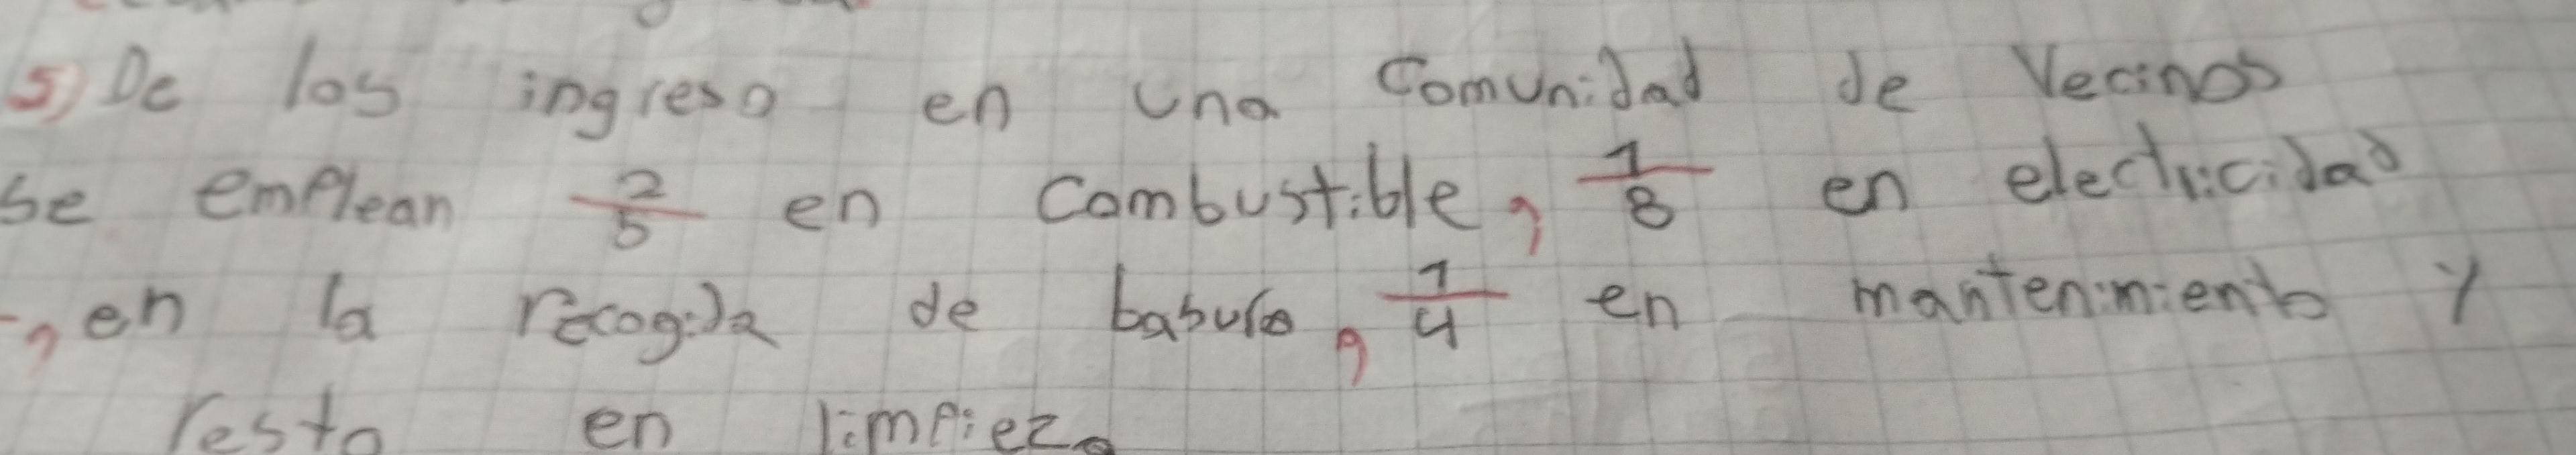 5) De los ingreso en una Comunidad de Vecinos
se emplean 2/5 en combustible, 1/8 en electricidad
, en la recogida de basura, 1/4 en mantenimiento y
resto en limpieza